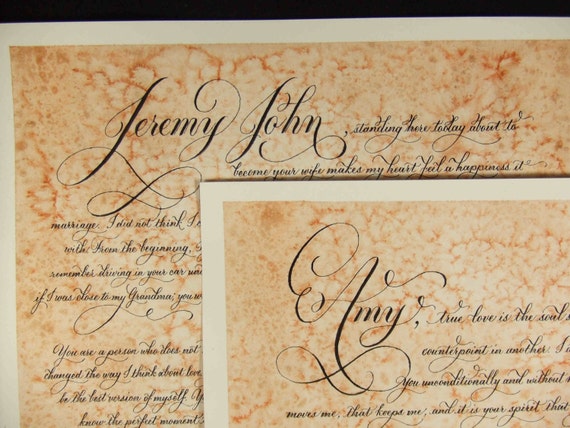 Jeremy John, standing here today about to
become your wife makes my heart feel a happiness it
marriage. I did not think I
with. From the beginning,
remember driving in your car
if I was close to my Grandma; you
You are a person who does not
changed the way I think about love
be the best version of myself.
know the perfect moment
Amy, true love is the soul's
counterpoint in another. I
You unconditionally and without
moves me, that keeps me, and it is your spirit that